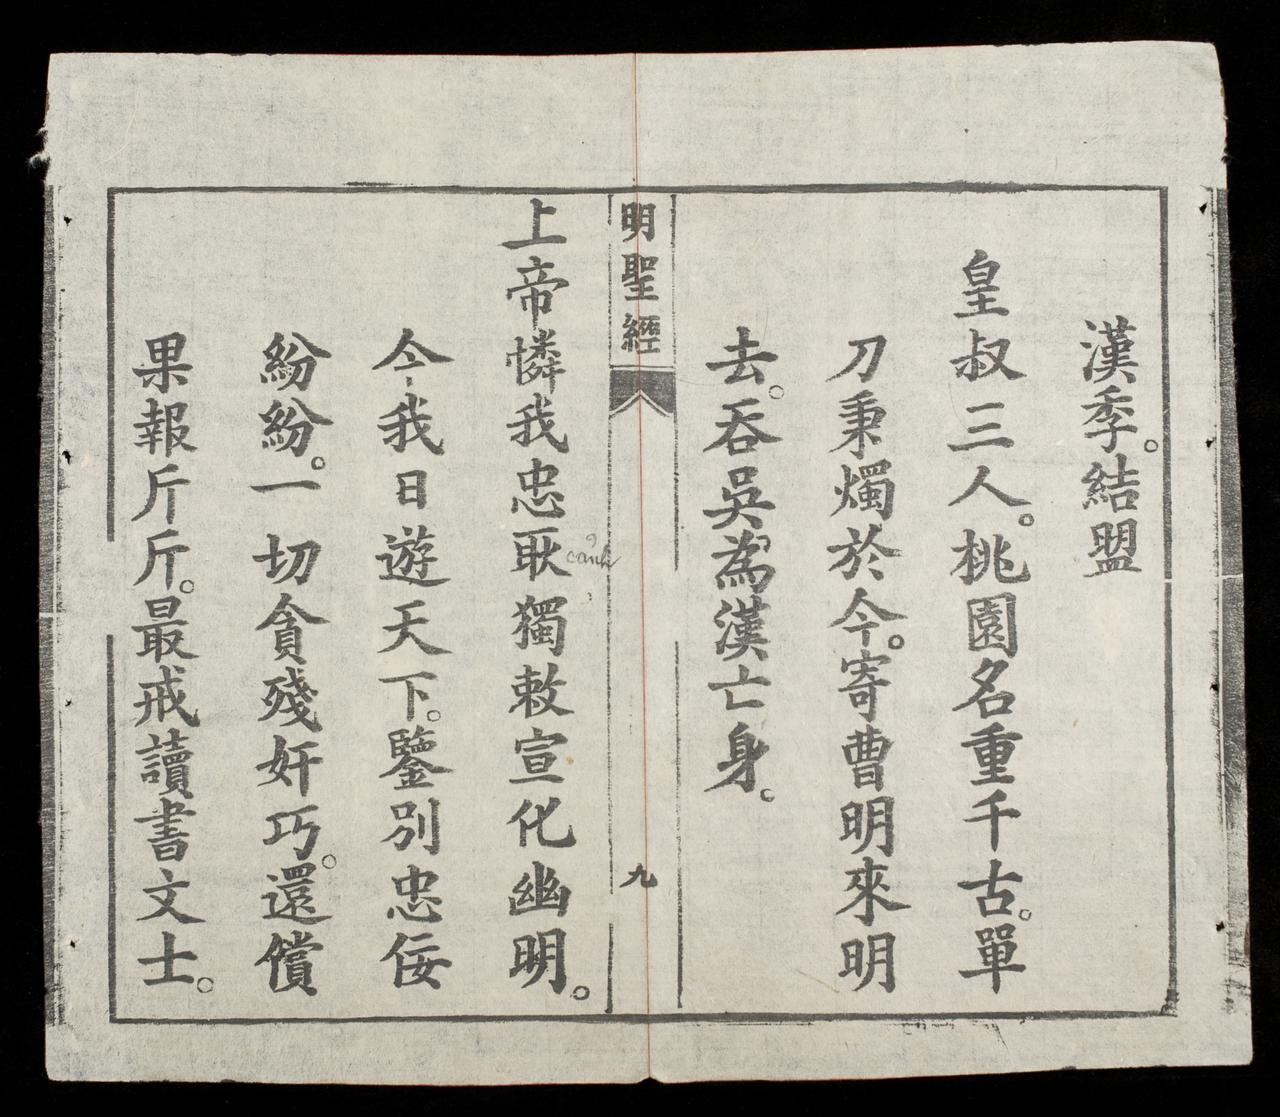 漢季。結盟
皇叔三人。桃園名重千古。單
刀秉燭於今。寄曹明來明
去。吞吳為漢亡身。
明聖經
九
上帝憐我忠耿獨敕宣化幽明。
canh
今我日遊天下。鑒別忠佞
紛紛。一切貪殘奸巧。還償
果報斤斤。最戒讀書文士。